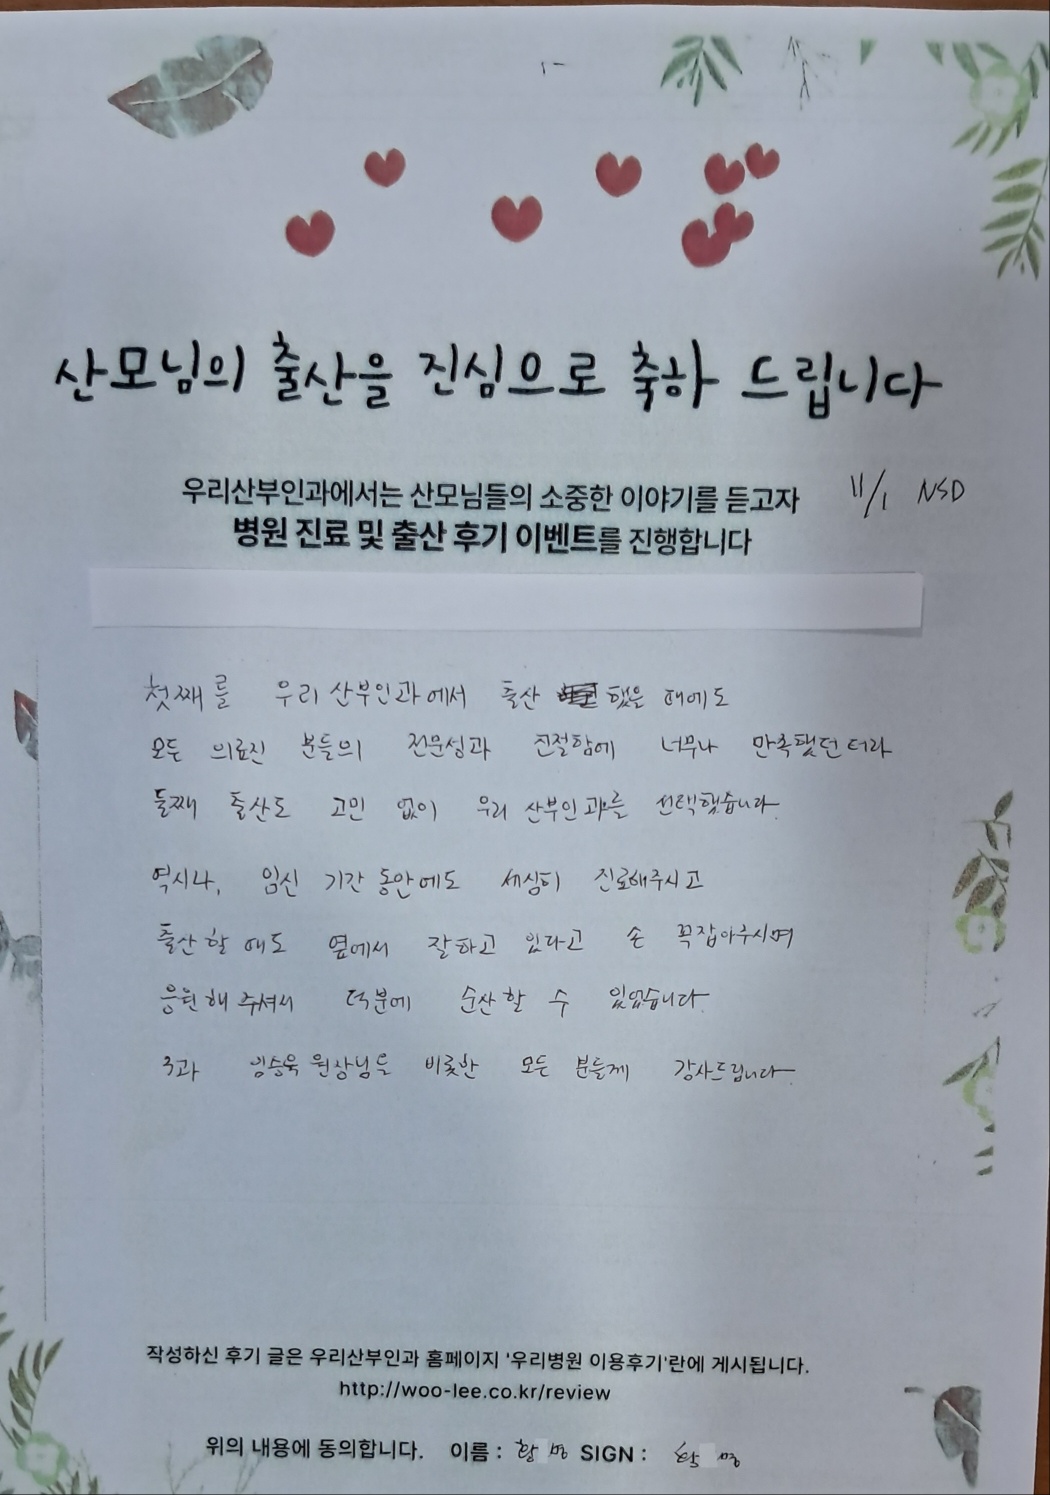 산모님의 출산을 진심으로 축하 드립니다
우리산부인과에서는 산모님들의 소중한 이야기를 듣고자
11/1 NSD
병원 진료 및 출산 후기 이벤트를 진행합니다
첫째를 우리 산부인과에서 출산 했을 때에도
모든 의료진 분들의 전문성과 친절함에 너무나 만족했던터라
둘째 출산도 고민 없이 우리 산부인과를 선택했습니다.
역시나, 임신 기간 동안에도 세심히 진료해주시고
출산할 때도 옆에서 잘하고 있다고 손 꼭잡아주시며
응원해주셔서 덕분에 순산할 수 있었습니다.
3과 임승욱 원장님을 비롯한 모든 분들께 감사드립니다.
작성하신 후기 글은 우리산부인과 홈페이지 '우리병원 이용후기'란에 게시됩니다.
http://woo-lee.co.kr/review
위의 내용에 동의합니다. 이름 : SIGN :